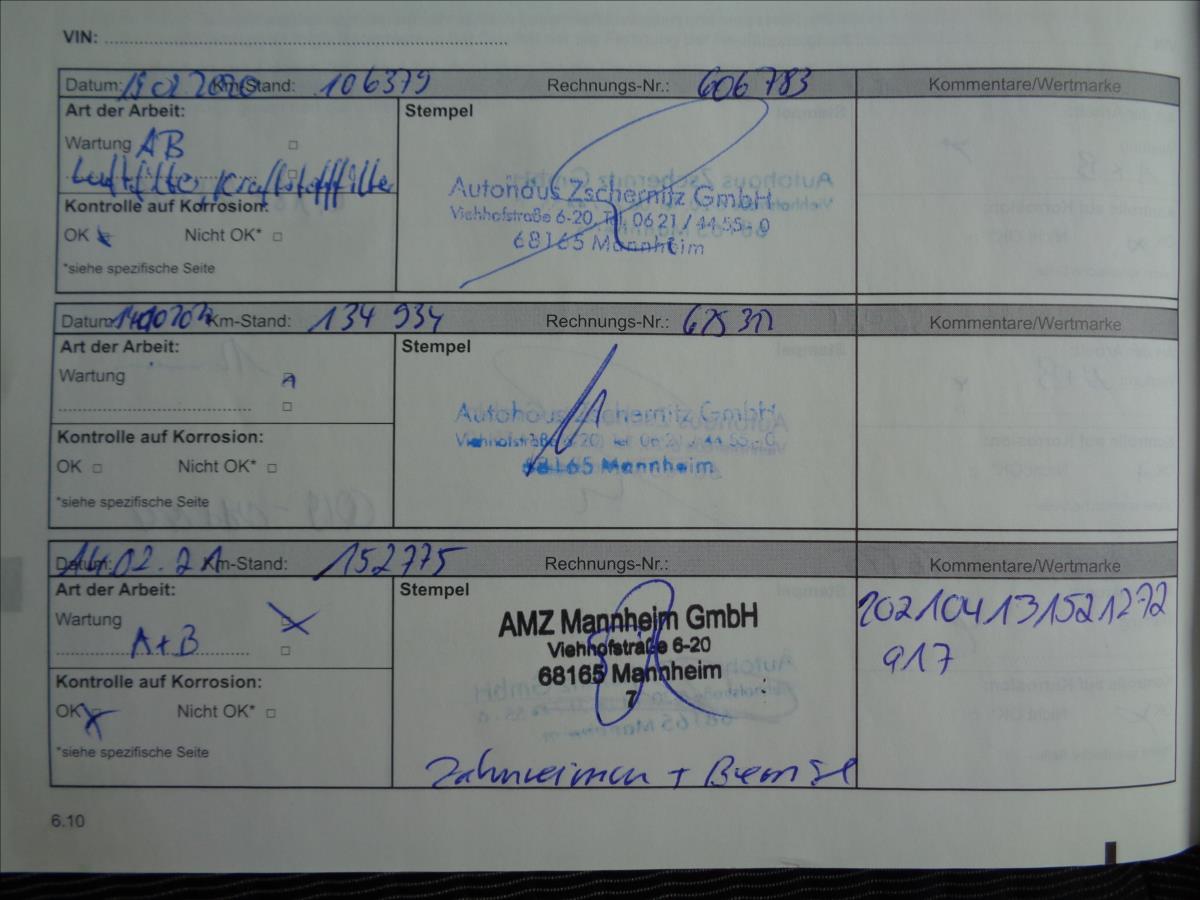 VIN:
Datum: Km-Stand: 106379 Rechnungs-Nr.: 606783 Kommentare/Wertmarke
Art der Arbeit: Stempel
Wartung AB
Luftfilter, Kraftstofffilter
Autohaus Zschernitz GmbH
Viehhofstraße 6-20, Tel. 0621 / 44 55 - 0
68165 Mannheim
Kontrolle auf Korrosion:
OK Nicht OK*
*siehe spezifische Seite
Datum: Km-Stand: 134 934 Rechnungs-Nr.: Kommentare/Wertmarke
Art der Arbeit: Stempel
Wartung A
Autohaus Zschernitz GmbH
Viehhofstraße 6-20, Tel. 0621 / 44 55 - 0
68165 Mannheim
Kontrolle auf Korrosion:
OK Nicht OK*
*siehe spezifische Seite
Datum: 14.02.21 Km-Stand: 152775 Rechnungs-Nr.: Kommentare/Wertmarke
Art der Arbeit: Stempel
Wartung
A+B
AMZ Mannheim GmbH
Viehhofstraße 6-20
68165 Mannheim
7
202104131521272
917
Kontrolle auf Korrosion:
OK Nicht OK*
*siehe spezifische Seite
Zahnriemen + Bremse
6.10